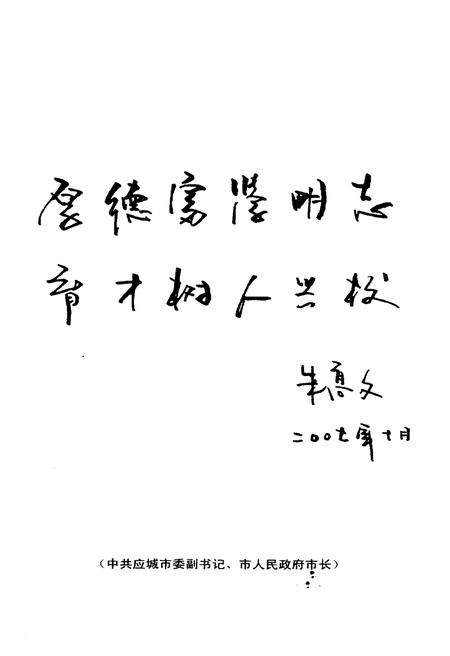 厚德富学明志
育才树人兴校
朱高文
二〇〇七年十月
（中共应城市委副书记、市人民政府市长）